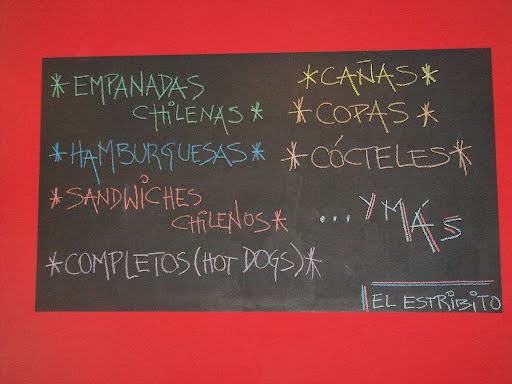 *EMPANADAS
CHILENAS*
*HAMBURGUESAS*
*SANDWICHES
CHILENOS*
*COMPLETOS(HOT DOGS)*
*CAÑAS*
*COPAS*
*CÓCTELES*
...Y MÁS
EL ESTRIBITO